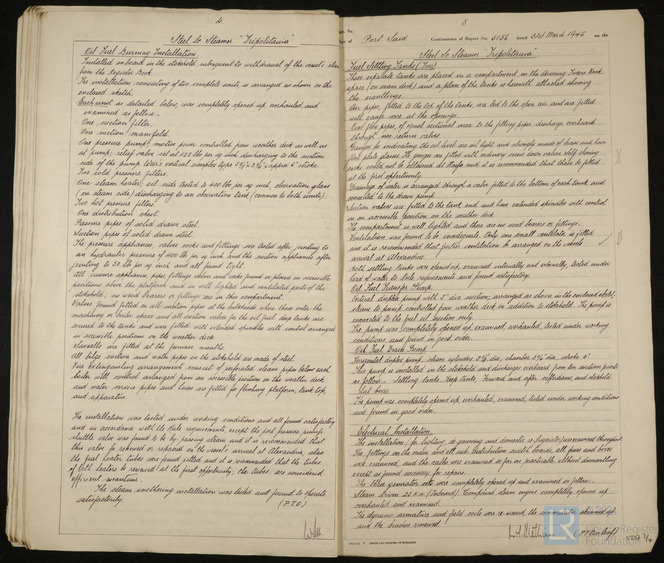 4
Steel Sc Steamer "Tripolitania"
Oil Fuel Burning Installation
Installed on board in the stokehold subsequent to withdrawal of the vessel's class
from the Register Book.
The installation consisting of two complete units, is arranged as shown on the
enclosed sketch.
Each unit as detailed below, was completely opened up overhauled and
examined as follows.
One suction filter.
One suction manifold.
One pressure pump
oil pump, relief valve set at 225 lbs per sq inch discharging to the suction
side of the pump
Two cold pressure filters
One steam heater, coil side tested to 400 lbs per sq inch observation glass
(on steam side) discharging to an observation tank (common to both units).
Two hot pressure filters
One distribution chest.
Pressure pipes of solid drawn steel.
Suction pipes of solid drawn steel.
The pressure appliances, valves cocks and fittings were tested after jointing to
an hydraulic pressure of 400 lbs per sq inch and the suction appliances after
jointing to 50 lbs per sq inch and all found tight.
All pressure appliances, pipe fittings valves and cocks found so placed in accessible
positions above the platform and in well lighted and ventilated parts of the
stokehold, no wood bearers or fittings are in this compartment.
Valves found fitted in all suction pipes at the bulkheads where these enter the
machinery or boiler spaces and all suction valves for the oil fuel deep tanks are
secured to the tanks and are fitted with extended spindles with control arranged
in accessible positions on the weather deck
Savealls are fitted at the furnace mouths
All bilge suction and water pipes in the stokehold are made of steel.
Fire extinguishing arrangement consist of perforated steam pipe below each
boiler with control arranged from an accessible position on the weather deck
and water service pipes and hoses are fitted for flushing platform, tank top,
and apparatus
The installation was tested under working conditions and all found satisfactory
and in accordance with the Rule requirements, except the port pressure pump
shuttle valve was found to be passing steam and it is recommended that
this valve be renewed or repaired on the vessel's arrival at Alexandria, also
the fuel heater tubes were found pitted and it is recommended that the tubes
of both heaters be renewed at the first opportunity, the tubes are considered
efficient meantime.
The steam smothering installation was tested and found to operate
satisfactorily.
(P.T.O)
5
Port Said
Continuation of Report No. 5156 dated 31st March 1945 on the
Steel Sc Steamer "Tripolitania"
Fuel Settling Tanks (Two)
These separate tanks are placed in a compartment in the
space (on main deck) and a plan of the tanks is herewith attached showing
the scantlings.
Air pipes, fitted to the top of the tanks are led to the open air and are fitted
with gauze wire at the openings.
Over flow pipes of equal sectional area to the filling pipes, discharge overboard
through non return valves.
Gauges for indicating the oil level are oil tight and strongly made of brass and have
flat plate glasses.
at the first opportunity.
Drainage of water is arranged through a valve fitted to the bottom of each tank and
connected to the drain pump.
Suction valves are fitted to the tank end and have extended spindles with control
in an accessible position on the weather deck
The compartment is well lighted and there are no wood bearers or fittings.
Ventilation was found to be inadequate. Only one small ventilator is fitted
and it is recommended that further ventilation be arranged on the vessels
arrival at Alexandria.
Both settling tanks were opened up, examined internally and externally, tested under
head of water to Rule requirements and found satisfactory.
Oil Fuel Transfer Pump.
Vertical duplex pump with 5" dia suction; arranged as shown in the enclosed sketch;
steam to pump controlled from weather deck in addition to stokehold. The pump is
connected to the fuel oil suction only.
The pump was completely opened up, examined, overhauled, tested under working
conditions and found in good order.
Oil Fuel Drain Pump.
Horizontal duplex pump
The pump is installed in the stokehold and discharges overboard from ten suction points
as follows. Settling tanks. Deep tanks. Forward and after cofferdams and stokehold
tank bases
The pump was completely opened up, overhauled, examined, tested under working conditions
and found in good order.
Electrical Installation
The installation, for lighting, de-gaussing and domestic is
The fittings on the mains and all main distribution switch boards, all fuses and boxes
were examined, and the cables were examined as far as practicable without dismantling
except as found necessary for repairs.
The three generator sets were completely opened up and examined as follows.
Steam driven 22 K.W (Inboard). Compound steam engine completely opened up
overhauled and examined.
The dynamo armature and field coils were re-wound, the commutator skimmed up
and the brushes renewed.